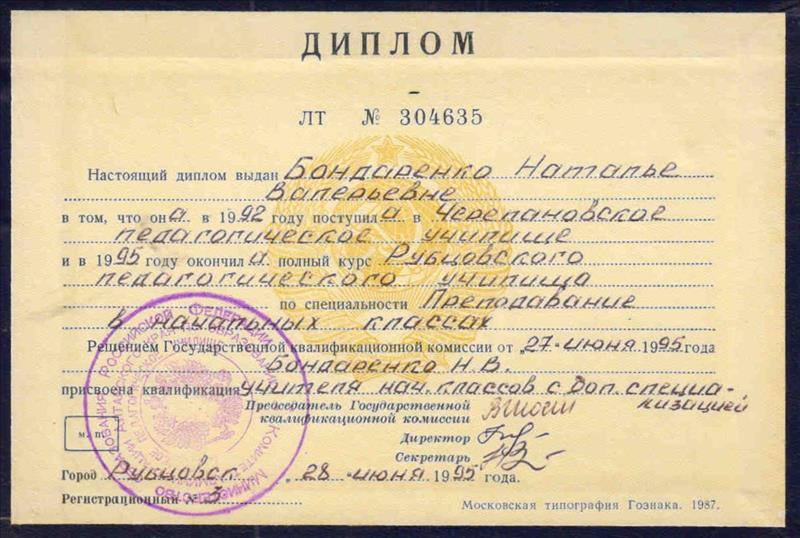 ДИПЛОМ
ЛТ № 304635
Настоящий диплом выдан Бондаренко Наталье
Валерьевне
в том, что она в 1992 году поступила в Черепановское
педагогическое училище
и в 1995 году окончила полный курс Рубцовского
педагогического училища
по специальности Преподавание
в начальных классах
Решением Государственной квалификационной комиссии от "27" июня 1995 года
Бондаренко Н.В.
присвоена квалификация учителя нач. классов с доп. специа-
лизацией
Председатель Государственной
квалификационной комиссии
Директор
Секретарь
М. П.
Город Рубцовск "28" июня 1995 года.
Регистрационный № 3
Московская типография Гознака. 1987.